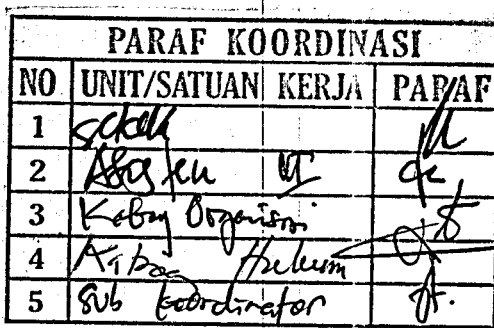 PARAF KOORDINASI
NO UNIT/SATUAN KERJA PARAF
1 Sekda
2 Asisten III
3 Kabag Organisasi
4 Kabag Hukum
5 Sub Koordinator